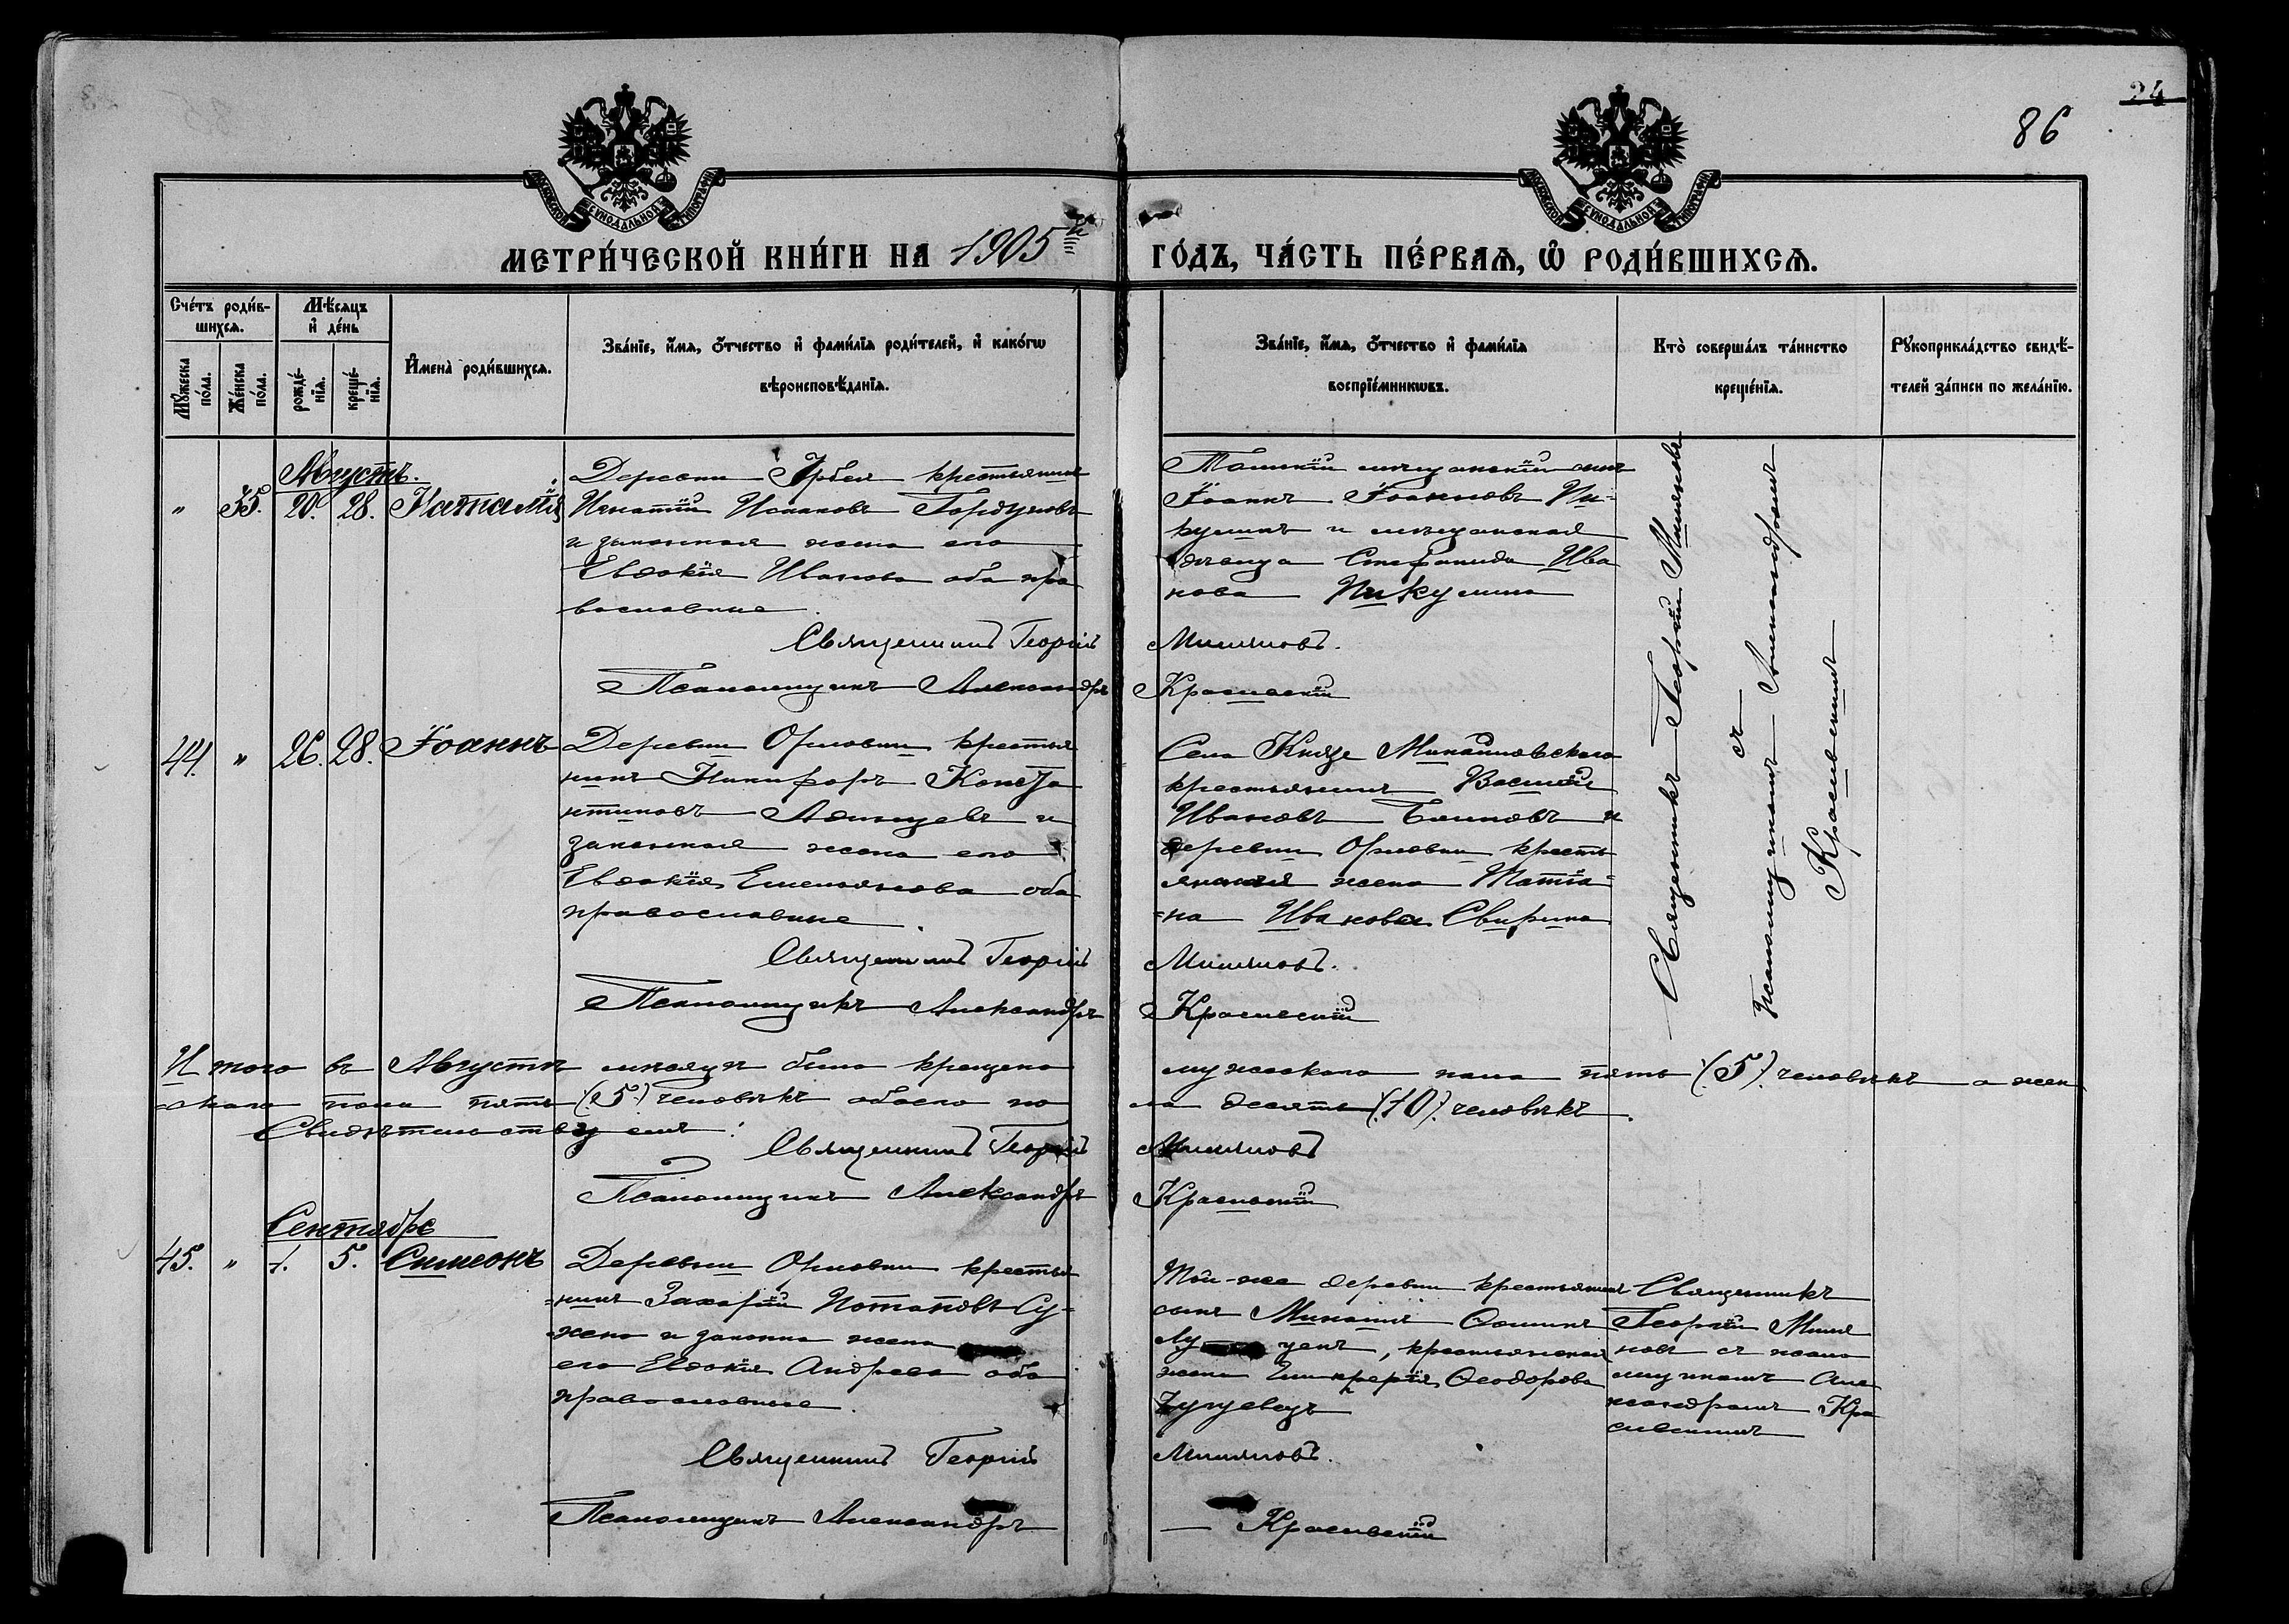 24
86
МОСКОВСКОЙ СѴНОДАЛЬНОЙ ТИПОГРАФІИ
МОСКОВСКОЙ СѴНОДАЛЬНОЙ ТИПОГРАФІИ
МЕТРИ́ЧЕСКОЙ КНИ́ГИ НА 1905й
ГО́ДЪ, ЧА́СТЬ ПЕ́РВАѦ, Ѡ҆ РОДИ́ВШИХСѦ.
Сче́тъ роди́в-
шихсѧ.
Мѣ́сѧцъ
и҆ де́нь
Мꙋ́жеска
по́ла.
Же́нска
по́ла.
рожде́-
нїѧ.
креще́-
нїѧ.
И҆мена̀ роди́вшихсѧ.
Зва́нїе, и҆́мѧ, ѻ҆́тчество и҆ фами́лїѧ роди́телей, и҆ како́гѡ
вѣроисповѣ́данїѧ.
Зва́нїе, и҆́мѧ, ѻ҆́тчество и҆ фами́лїѧ
воспрїе́мникѡвъ.
Кто̀ соверша́лъ та́инство
креще́нїѧ.
Рꙋкоприкла́дство свидѣ́-
телей за́писи по жела́нїю.
Августъ.
" 35. 20. 28. Наталія
Деревни Ирбея крестьянинъ
Игнатій Исааковъ Гордуновъ
и законная жена его
Евдокія Иванова оба пра
вославные.
Священникъ Георгій
Псаломщикъ Александръ
мѣщанскій сынъ
Іоаннъ Іоанновъ Пи-
кулинъ и мѣщанская
Стефанида Ива
нова Пикулина
Мишяковъ.
Красивскій
Священникъ Георгій Мишяковъ
съ
Псаломщикомъ Александромъ
Красивскимъ
44. " 26. 28. Іоаннъ
Деревни Орловки крестья
нинъ Никифоръ Конста
нтиновъ и
законная жена его
Евдокія Емельянова оба
православные.
Священникъ Георгій
Псаломщикъ Александръ
Села Князе Михайловскаго
крестьянинъ Василій
Ивановъ Блиновъ и
деревни Орловки кресть
янская жена Татіа-
-на Иванова Свирина
Мишяковъ.
Красивскій
Итого въ Августѣ мѣсяцѣ было крещено
мужескаго пола пять (5) человѣкъ а жен
-скаго пола пять (5) человѣкъ обоего по
ла десять (10) человѣкъ.
Свидѣтельствуемъ:
Священникъ Георгій
Мишяковъ
Псаломщикъ Александръ
Красивскій
Сентябрь
45. " 1. 5. Симеонъ
Деревни Орловки крестья
-нинъ Захарій Потаповъ Су-
жена и законна жена
его Евдокія Андрева оба
православные.
Священникъ Георгій
Псаломщикъ Александръ
Той-же деревни крестьянинъ
сынъ Михаилъ
крестьянская
жена Ѳеодорова
Мишяковъ.
— Красивскій
Священникъ
Георгій Мишя
ковъ съ псало
мщикомъ Але
ксандромъ Кра
сивскимъ